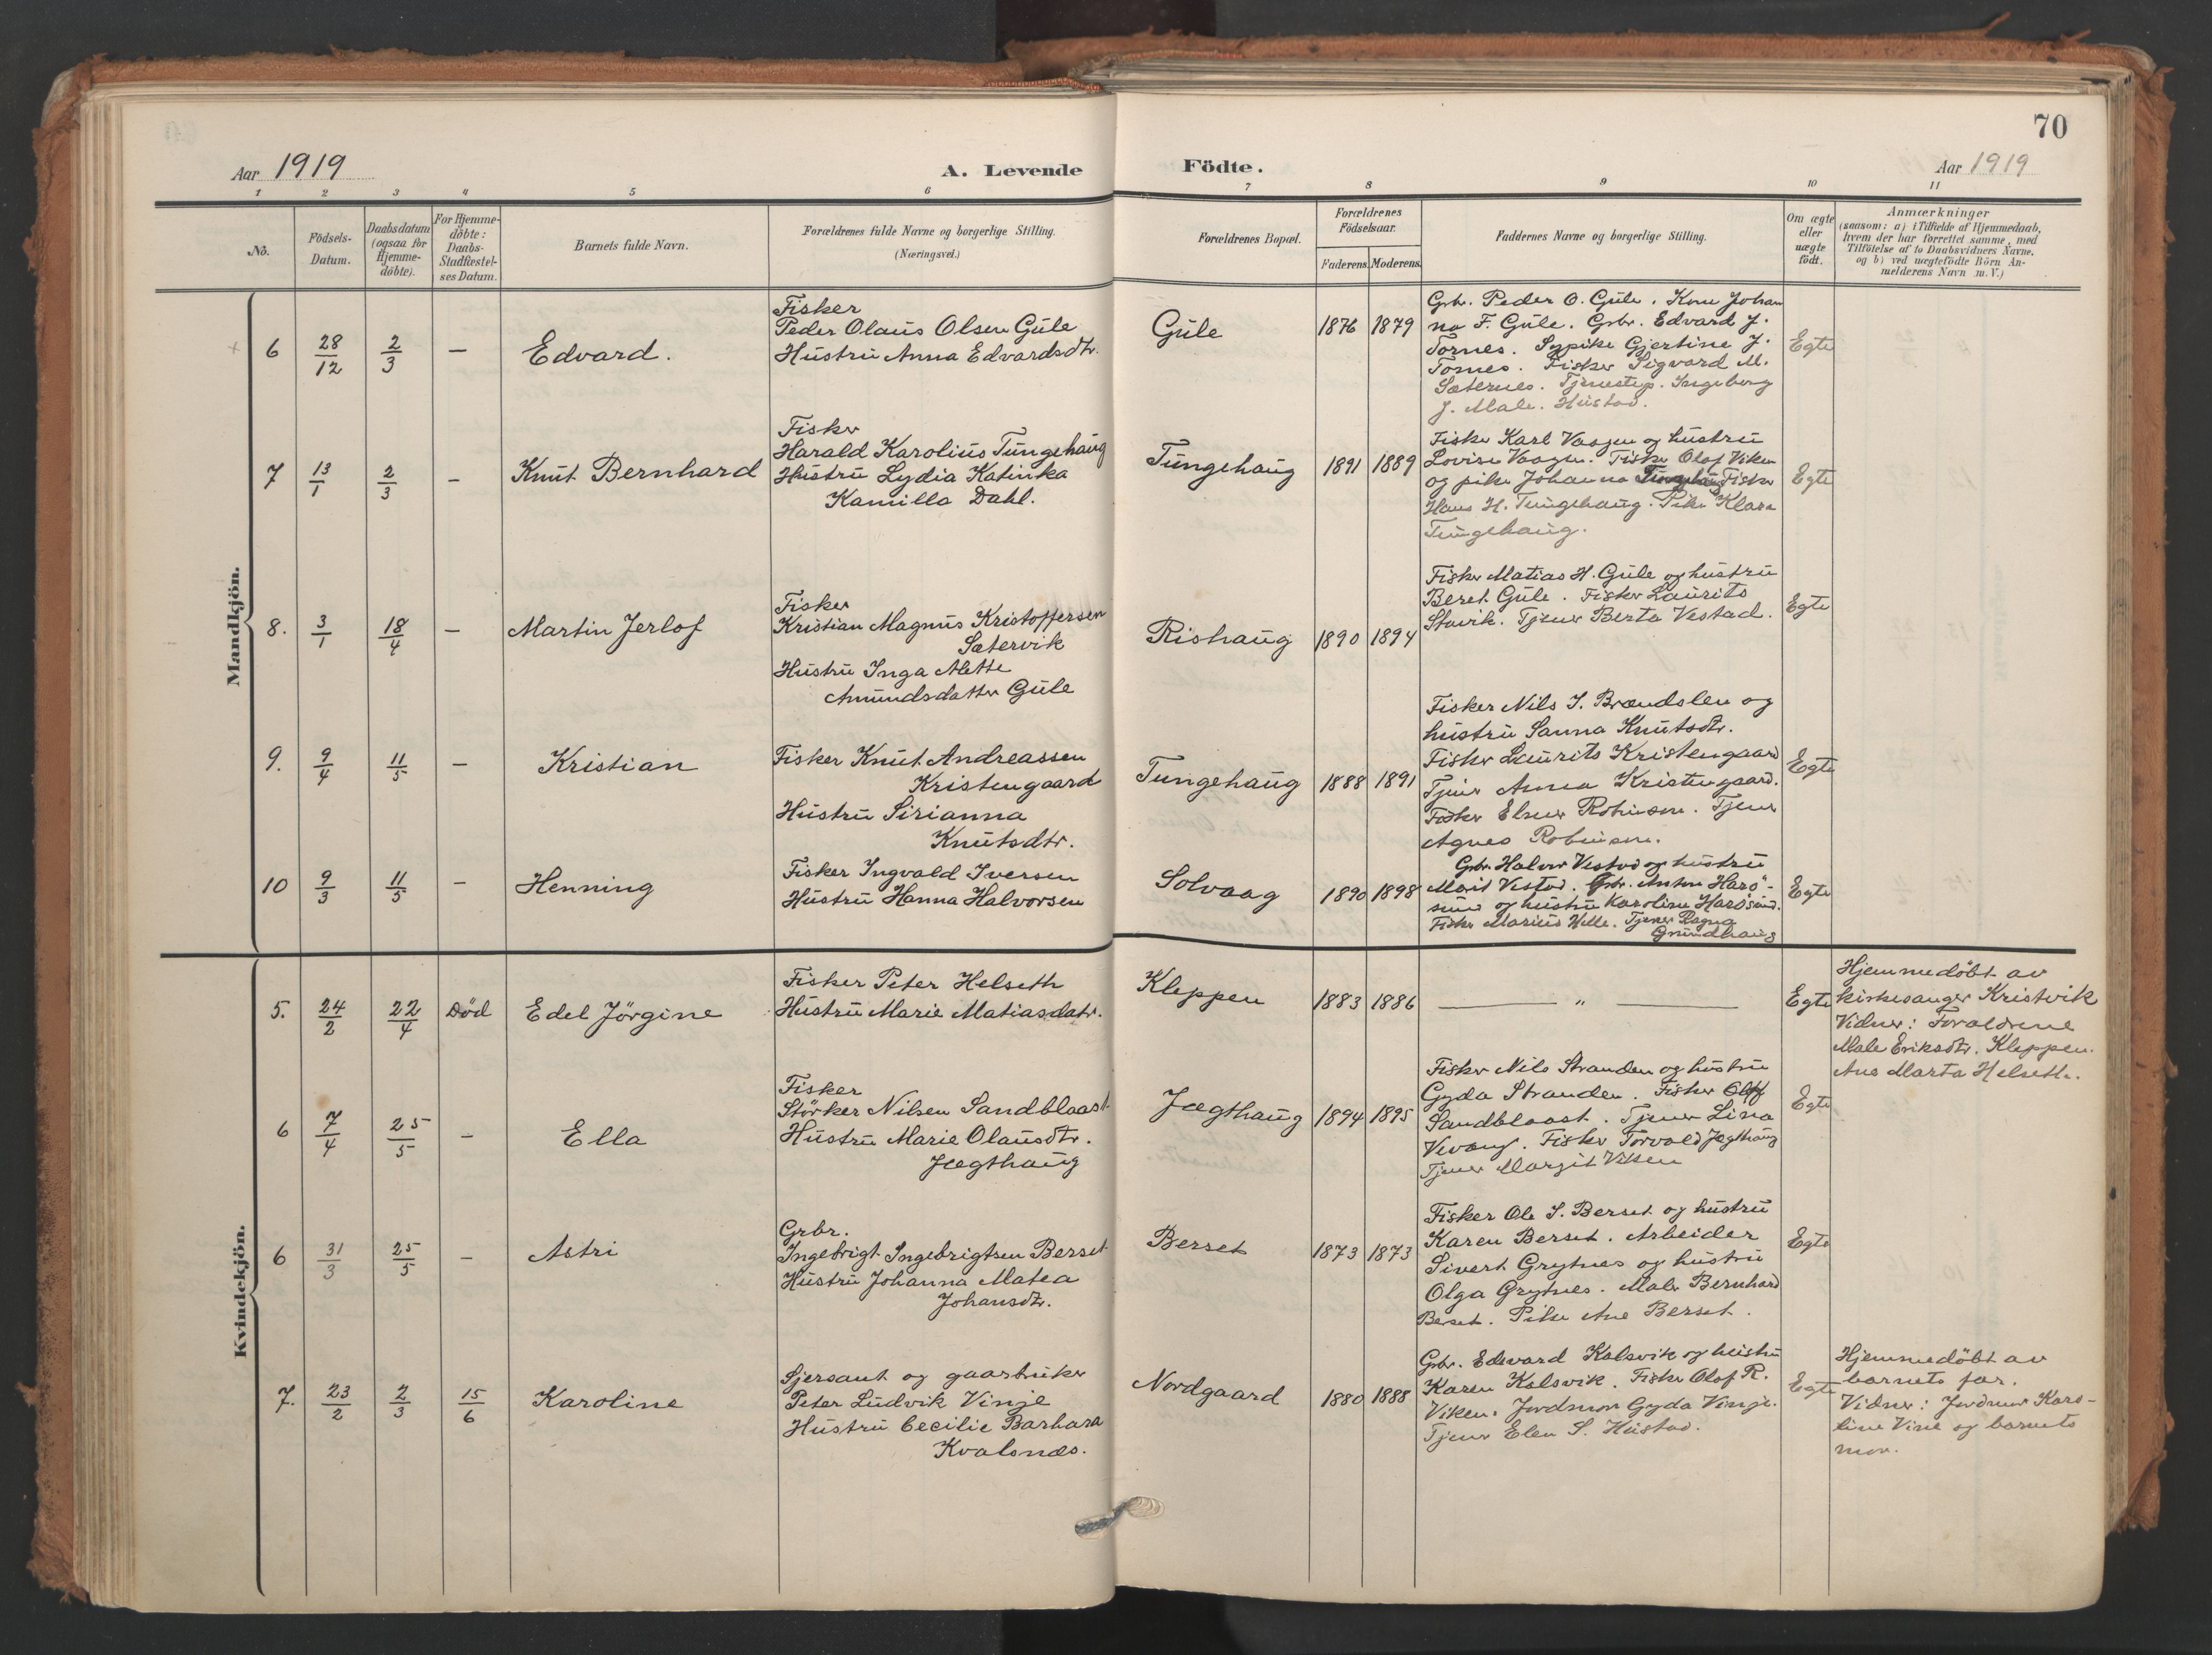 70
Aar 1919
A. Levende Födte.
Aar 1919
1 2 3 4 5 6 7 8 9 10 11
No.
Födsels-
Datum.
Daabsdatum
(ogsaa for
Hjemme-
döbte).
For Hjemme-
döbte:
Daabs-
Stadfæstel-
ses Datum.
Barnets fulde Navn.
Forældrenes fulde Navne og borgerlige Stilling.
(Næringsvei.)
Forældrenes Bopæl.
Forældrenes
Födselsaar.
Faderens. Moderens.
Faddernes Navne og borgerlige Stilling.
Om ægte
eller
uægte
födt.
Anmærkninger
(saasom: a) i Tilfælde af Hjemmedaab,
hvem der har forrettet samme, med
Tilföielse af to Daabsvidners Navne,
og b) ved uægtefödte Börn An-
melderens Navn m.V.)
Mandkjön.
6 28/12 2/3 — Edvard.
Fisker
Peder Olaus Olsen Gule
Hustru Anna Edvardsdtr.
Gule 1876 1879
Grbr. Peder O. Gule. Kone Johan
na F. Gule. Grbr. Edvard J.
Tornes. Sypike Gjertine J.
Tornes. Fisker Sigvard M.
Sæternes. Tjenestep. Ingeborg
J. Male. Hustad.
Egte
7 13/1 2/3 - Knut Bernhard
Fisker
Harald Karolius Tungehaug
Hustru Lydia Katinka
Kamilla Dahl.
Tungehaug 1891 1889
Fisker Karl Vaagen og hustru
Lovise Vaagen. Fisker Olaf Viken
og pike Johanna Tungehaug Fisker
Hans H. Tungehaug. Pike Klara
Tungehaug.
Egte
8. 3/1 18/4 — Martin Jerlof
Fisker
Kristian Magnus Kristoffersen
Sætervik
Hustru Inga Mette
Amundsdatter Gule
Rishaug 1890 1894
Fisker Matias H. Gule og hustru
Beret Gule. Fisker Laurits
Stavik. Tjener Berta Vestad.
Egte
9. 9/4 11/5 — Kristian
Fisker Knut Andreassen
Kristengaard
Hustru Sirianna
Knutsdtr.
Tungehaug 1888 1891
Fisker Nils I. Brandslen og
hustru Sanna Knutsdtr.
Fisker Laurits Kristengaard
Tjener Anna Kristengaard.
Fisker Elmer Robinson. Tjener
Agnes Robinson.
Egte
10 9/3 11/5 - Henning
Fisker Ingvald Iversen
Hustru Hanna Halvorsen
Solvaag 1890 1898
Grbr. Halvor Vestad og hustru
Marit Vestad. Grbr. Anton Harö-
sund og hustru Karoline Harösund.
Fisker Marius Welle. Tjener Ragna
Grundhaug
Egte
Kvindekjön.
5. 24/2 22/4 Död Edel Jörgine
Fisker Peter Helseth
Hustru Marie Matiasdatr.
Kleppen 1883 1886
— " —
Egte
Hjemmedöbt av
kirkesanger Kristvik
Vidner: Foraldrene
Male Eriksdtr. Kleppen.
Ane Marta Helseth.
6 7/4 25/5 - Ella
Fisker
Störker Nilsen Sandblaast
Hustru Marie Olausdtr.
Jægthaug
Jægthaug 1894 1895
Fisker Nils Stranden og hustru
Gyda Stranden. Fisker Olaf
Sandblaast. Tjener Lina
Vevang. Fisker Torvald Jægthaug
Tjener Margit Viken
Egte
6 31/3 25/5 - Astri
Grbr.
Ingebrigt Ingebrigtsen Berset
Hustru Johanna Matea
Johansdtr.
Berset 1873 1873
Fisker Ole I. Berset og hustru
Karen Berset. Arbeider
Sivert Grytnes og hustru
Olga Grytnes. Maler Bernhard
Berset. Pike Ane Berset.
Egte
7. 23/2 2/3 15/6 Karoline
Sjersant og gaarbruker
Peter Ludvik Vinje
Hustru Cecilie Barbara
Kvalsnæs.
Nordgaard 1880 1888
Grbr. Edevard Kolsvik og hustru
Karen Kolsvik. Fisker Olaf R.
Viken. Jordmor Gyda Vinje.
Tjener Elen S. Hustad.
Egte
Hjemmedöbt av
barnets far.
Vidner: Jordmor Karo-
line Vine og barnets
mor.